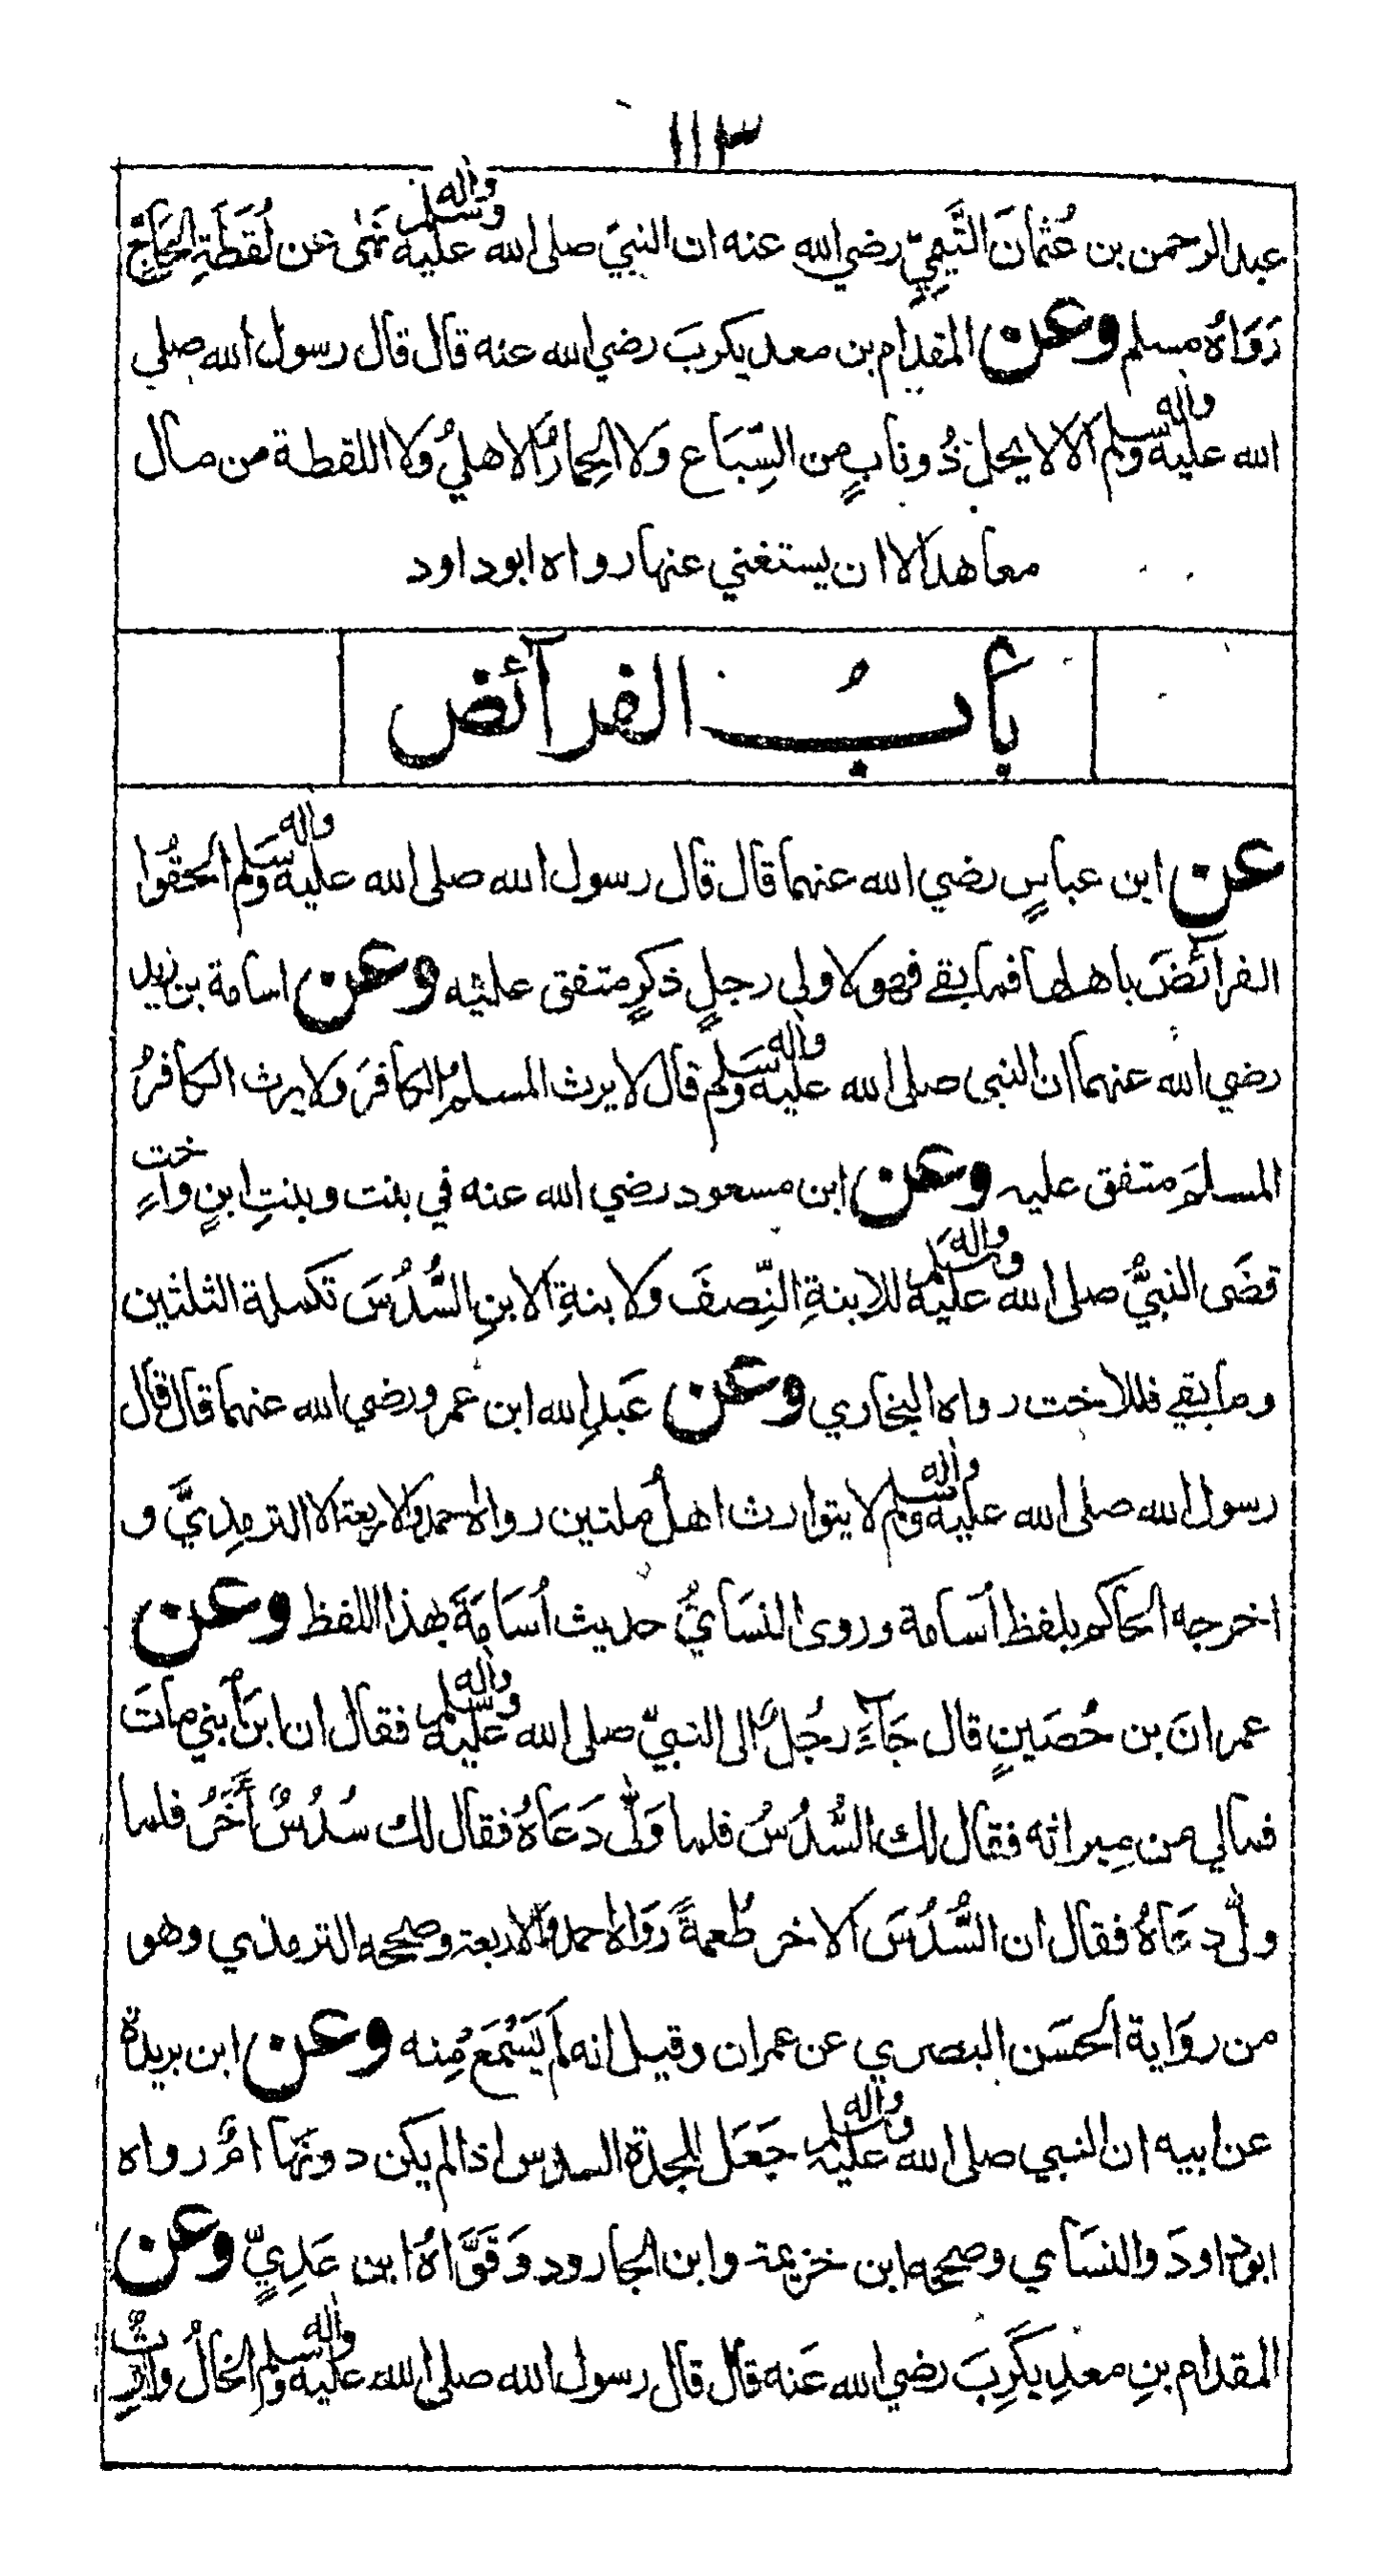 ١١٣
عبد الرحمن بن عُثمانَ التَّيمِيّ رضي الله عنه ان النبيّ صلى الله عليه واله وسلم نهى عن لُقَطَةِ الحَاجِّ
رَوَاهُ مسلم وعن المقدام بن معد يكربَ رضي الله عنه قال قال رسول الله صلي
الله عليه واله وسلم الا لا يحل ذُو نابٍ من السِّبَاع وَلا الحِمارُ الاهليُ ولا اللقطة من مال
معاهد الا ان يستغني عنها رواه ابو داود
بابُ الفرآئض
عن ابن عباسٍ رضي الله عنهما قال قال رسول الله صلى الله عليه واله وسلم الحقُوا
الفرآئضَ باهلها فما بقے فهو لاولى رجلٍ ذكرٍ متفق عليه وعن اسامة بن زيد
رضي الله عنهما ان النبي صلى الله عليه واله وسلم قال لا يرث المسلمُ الكافرَ ولا يرث الكافرُ
المسلمَ متفق عليه وعن ابن مسعود رضي الله عنه في بنت وبنتِ ابنٍ واختٍ
قضَى النبيُّ صلى الله عليه واله وسلم للابنةِ النِّصفَ ولابنةِ الابنِ السُّدُسَ تكملة الثلثين
وما بقي فللاخت رواه البخاري وعن عَبدِ الله ابن عمرو رضي الله عنهما قال قال
رسول الله صلى الله عليه واله وسلم لا يتوارث اهلُ ملتين رواه احمد والاربعة الا الترمِذِيَّ و
اخرجه الحاكم بلفظ أسامة وروى النسَايُّ حديث أُسَامَةَ بهذا اللفظ وعن
عمرانَ بن حُصَينٍ قال جَآءَ رجُلٌ الى النبيّ صلى الله عليه واله وسلم فقال ان ابنَ ابني ماتَ
فمالي من مِيراثه فقال لك السُّدُسُ فلما وَلّى دَعَاهُ فقال لك سُدُسٌ أخَرُ فلما
ولّى دعَاهُ فقال ان السُّدُسَ الاخر طُعمةً رَوَاه احمد والاربعة وصححه الترمذي وهو
من روَاية الحسَن البصري عن عمران وقيل انه لَم يَسْمَعْ مِنه وعن ابن بريدة
عن ابيه ان النبي صلى الله عليه واله وسلم جَعَل للجدة السدس اذا لم يكن دونَها امٌّ رواه
ابو داودَ والنسَاي وصححه ابن خزيمة وابن الجارود وَقَوَّاهُ ابن عَدِيٍّ وعن
المقدام بنِ معدِ يكَرِبَ رضي الله عَنه قال قال رسول الله صلى الله عليه واله وسلم الخالُ وارِثُ